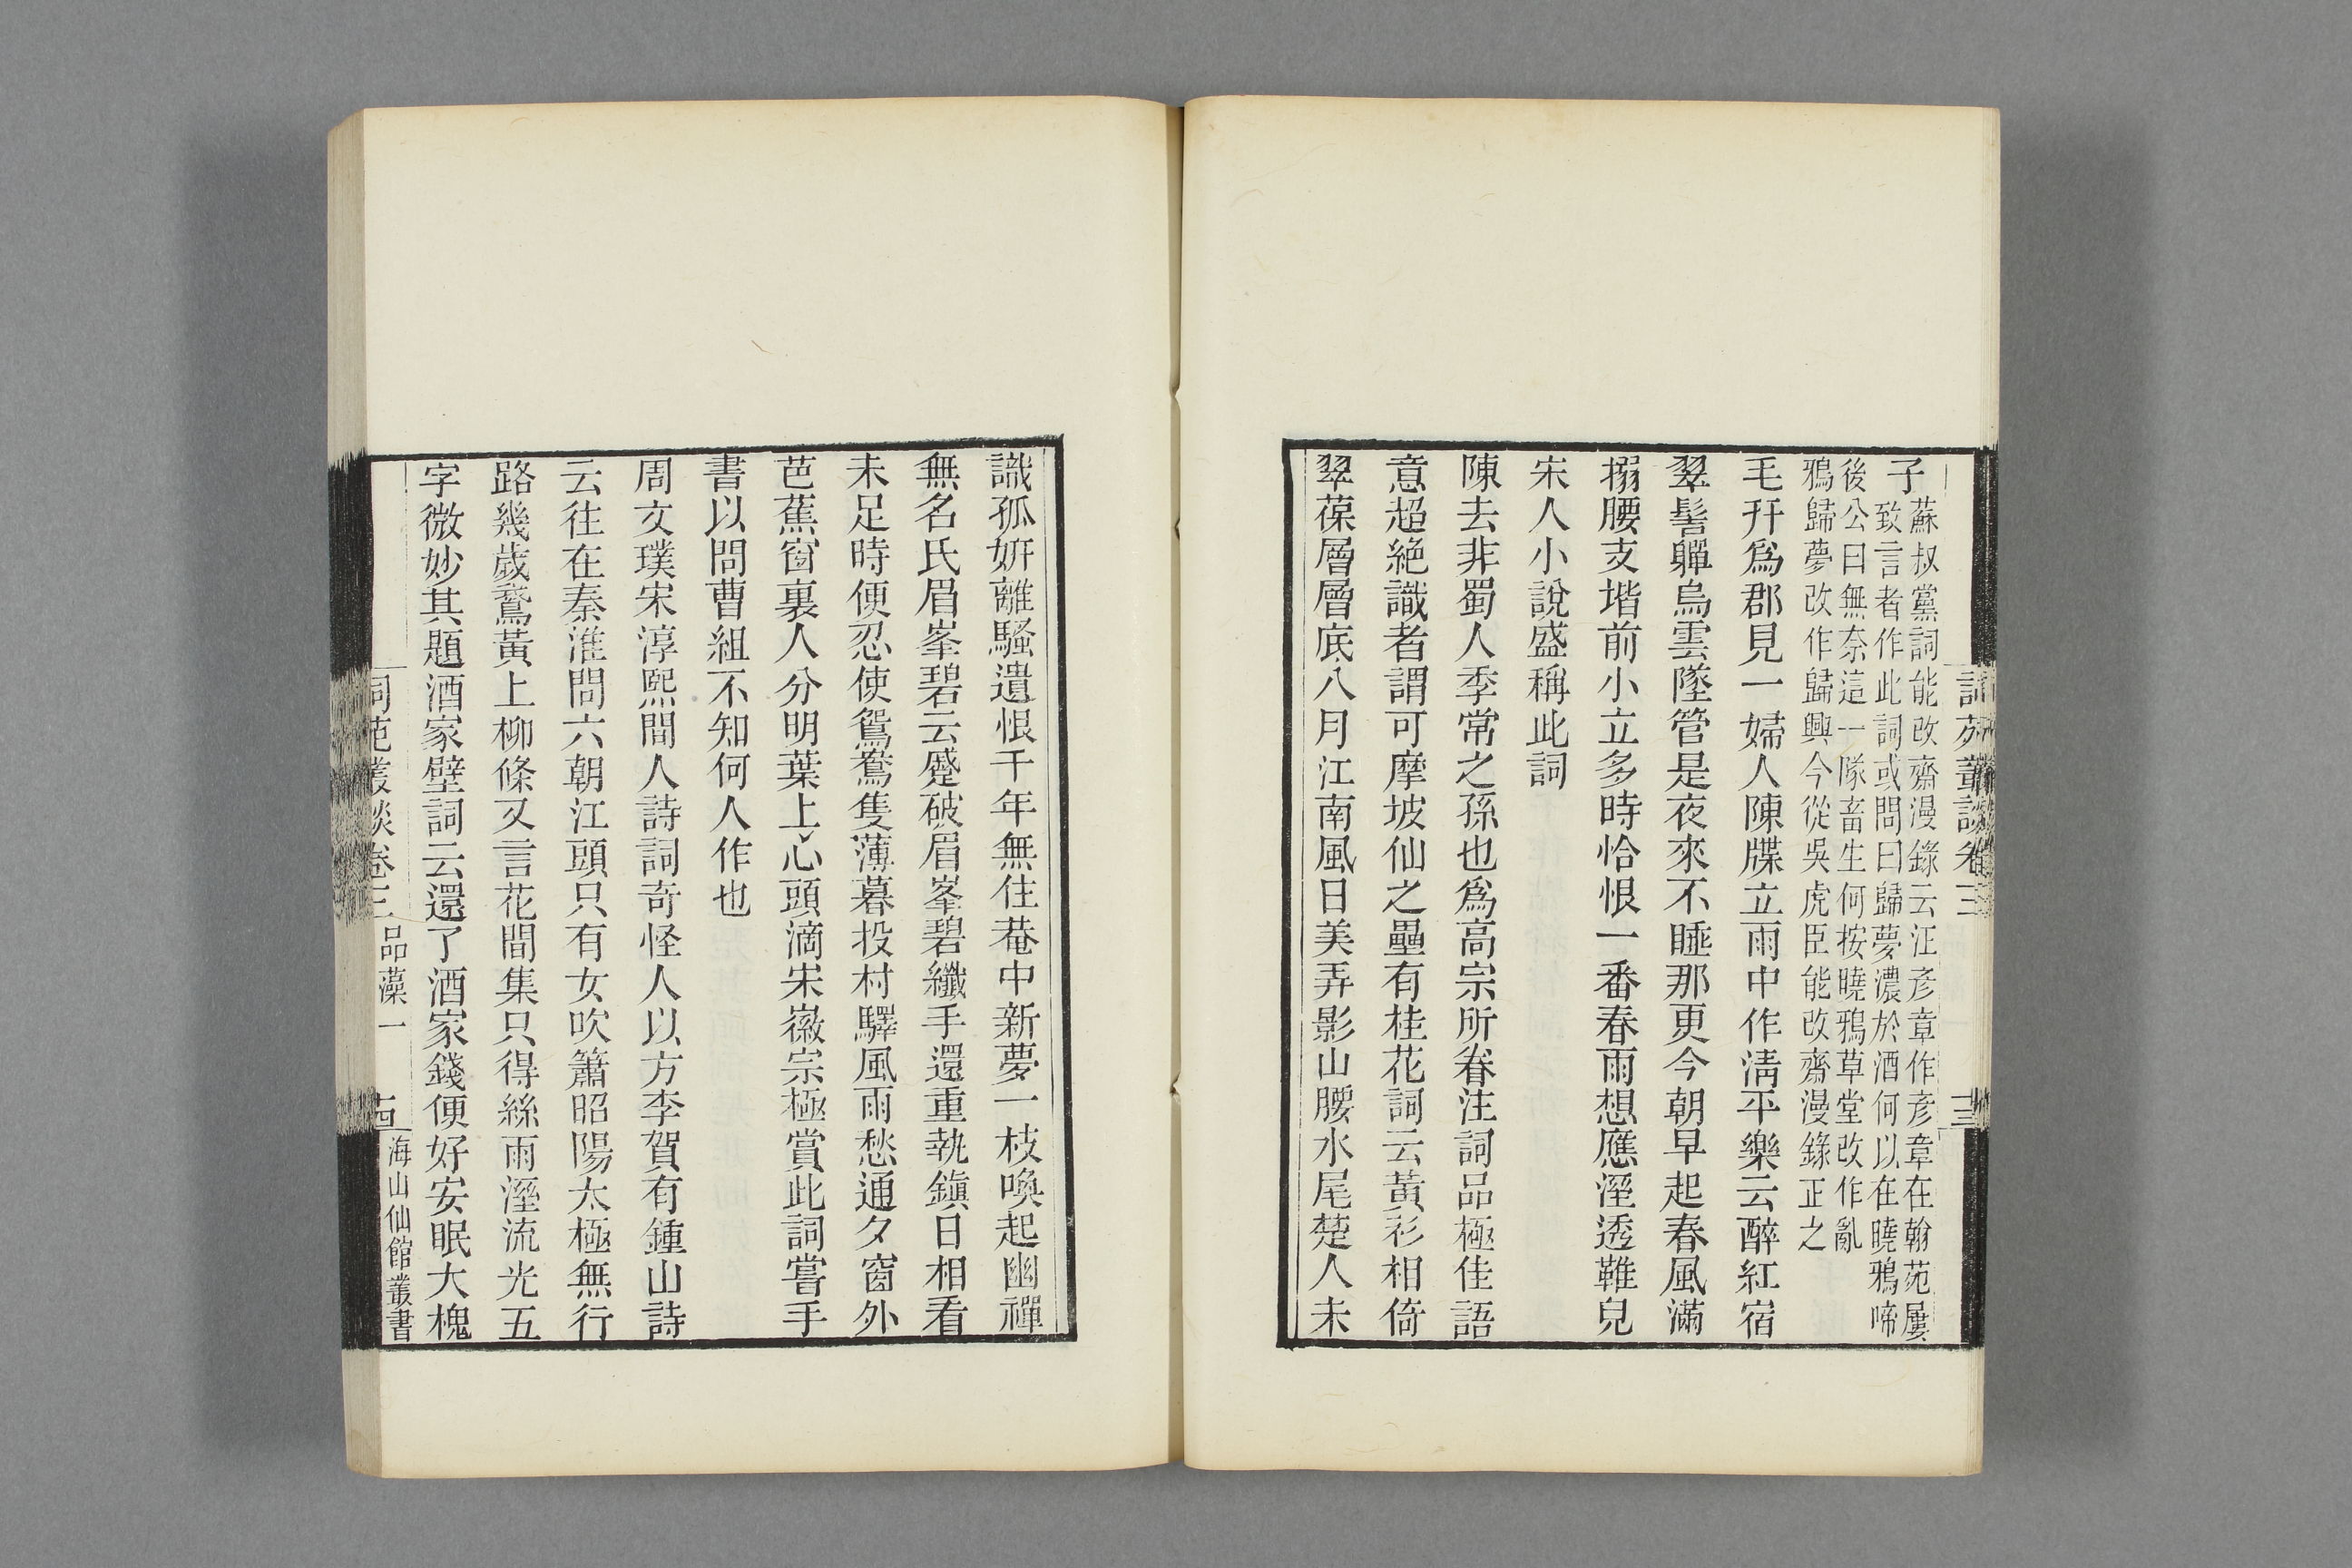 詞苑叢談卷三
十三
子
蘇叔黨詞能改齋漫錄云汪彦章作彦章在翰苑屢
致言者作此詞或問曰歸夢濃於酒何以在曉鴉啼
後公曰無奈這一隊畜生何按曉鴉草堂改作亂
鴉歸夢改作歸興今從吳虎臣能改齋漫錄正之
毛幵爲郡見一婦人陳牒立雨中作淸平樂云醉紅宿
翠髻嚲烏雲墜管是夜來不睡那更今朝早起春風滿
搦腰支堦前小立多時恰恨一番春雨想應溼透鞵兒
宋人小說盛稱此詞
陳去非蜀人季常之孫也爲高宗所眷注詞品極佳語
意超絶識者謂可摩坡仙之壘有桂花詞云黃衫相倚
翠葆層層底八月江南風日美弄影山腰水尾楚人未
識孤妍離騷遺恨千年無住菴中新夢一枝喚起幽禪
無名氏眉峯碧云蹙破眉峯碧纖手還重執鎭日相看
未足時便忍使鴛鴦隻薄暮投村驛風雨愁通夕窗外
芭蕉窗裏人分明葉上心頭滴宋徽宗極賞此詞嘗手
書以問曹組不知何人作也
周文璞宋淳熙間人詩詞奇怪人以方李賀有鍾山詩
云往在秦淮問六朝江頭只有女吹簫昭陽太極無行
路幾歲鵞黃上柳條又言花間集只得絲雨溼流光五
字微妙其題酒家壁詞云還了酒家錢便好安眠大槐
詞苑叢談卷三 品藻一 十四 海山仙館叢書